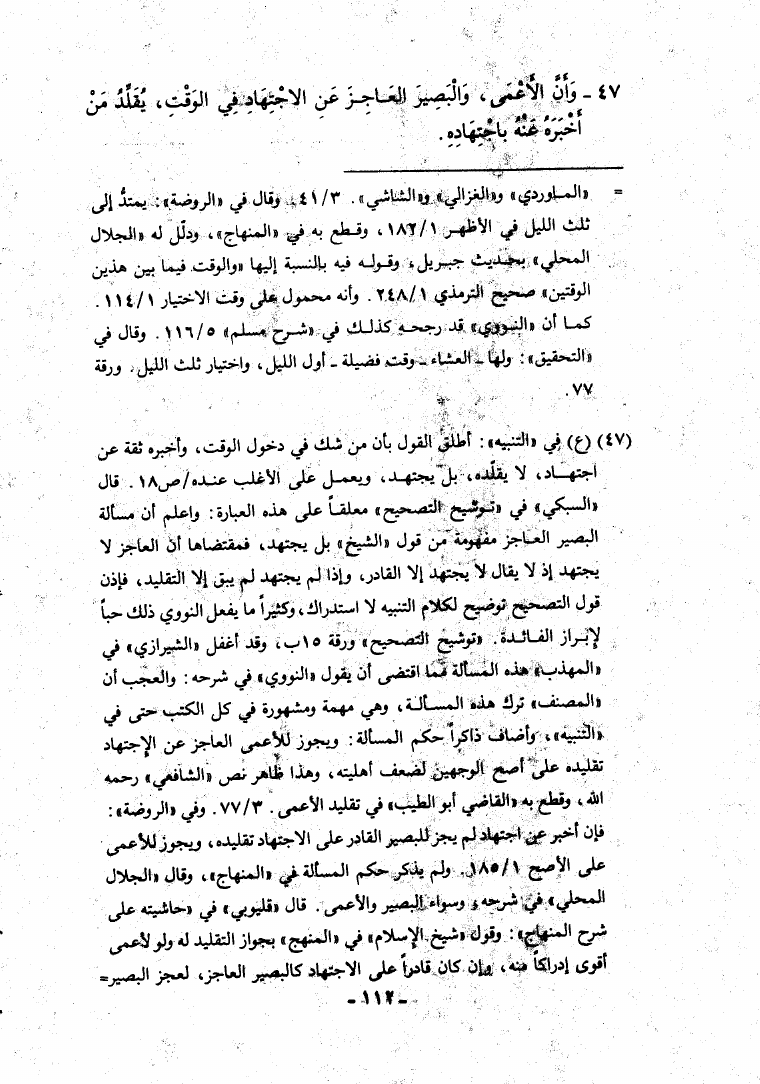 ٤٧ - وَأَنَّ الأَعْمَى، وَالْبَصِيرَ العَاجِزَ عَنِ الاجْتِهَادِ فِي الوَقْتِ، يُقَلِّدُ مَنْ
أَخْبَرَهُ عَنْهُ بِاجْتِهَادِهِ.
= «الماوردي» و«الغزالي» و«الشاشي». ٤١/٣، وقال في «الروضة»: يمتدُّ إلى
ثلث الليل في الأظهر ١٨٢/١، وقطع به في «المنهاج»، ودلّل له «الجلال
المحلي» بحديث جبريل، وقوله فيه بالنسبة إليها «والوقت فيما بين هذين
الوقتين» صحيح الترمذي ٢٤٨/١. وأنه محمول على وقت الاختيار ١١٤/١.
كما أن «النووي» قد رجحه كذلك في «شرح مسلم» ١١٦/٥. وقال في
«التحقيق»: ولها - العشاء - وقت فضيلة - أول الليل، واختيار ثلث الليل. ورقة
٧٧.
(٤٧) (ع) في «التنبيه»: أطلق القول بأن من شك في دخول الوقت، وأخبره ثقة عن
اجتهاد، لا يقلّده، بل يجتهد، ويعمل على الأغلب عنده/ص١٨. قال
«السبكي» في «توشيح التصحيح» معلقاً على هذه العبارة: واعلم أن مسألة
البصير العاجز مفهومة من قول «الشيخ» بل يجتهد، فمقتضاها أن العاجز لا
يجتهد إذ لا يقال لا يجتهد إلا القادر، وإذا لم يجتهد لم يبق إلا التقليد، فإذن
قول التصحيح توضيح لكلام التنبيه لا استدراك، وكثيراً ما يفعل النووي ذلك حباً
لإبراز الفائدة. «توشيح التصحيح» ورقة ١٥ب، وقد أغفل «الشيرازي» في
«المهذب» هذه المسألة مما اقتضى أن يقول «النووي» في شرحه: والعجب أن
«المصنف» ترك هذه المسألة، وهي مهمة ومشهورة في كل الكتب حتى في
«التنبيه»، وأضاف ذاكراً حكم المسألة: ويجوز للأعمى العاجز عن الإجتهاد
تقليده على أصح الوجهين لضعف أهليته، وهذا ظاهر نص «الشافعي» رحمه
الله، وقطع به «القاضي أبو الطيب» في تقليد الأعمى. ٧٧/٣. وفي «الروضة»:
فإن أخبر عن اجتهاد لم يجز للبصير القادر على الاجتهاد تقليده، ويجوز للأعمى
على الأصح ١٨٥/١. ولم يذكر حكم المسألة في «المنهاج»، وقال «الجلال
المحلي» في شرحه، وسواء البصير والأعمى. قال «قليوبي» في «حاشيته على
شرح المنهاج»: وقول «شيخ الإسلام» في «المنهج» بجواز التقليد له ولو لأعمى
أقوى إدراكاً منه، وإن كان قادراً على الاجتهاد كالبصير العاجز، لعجز البصير=
- ١١٢ -